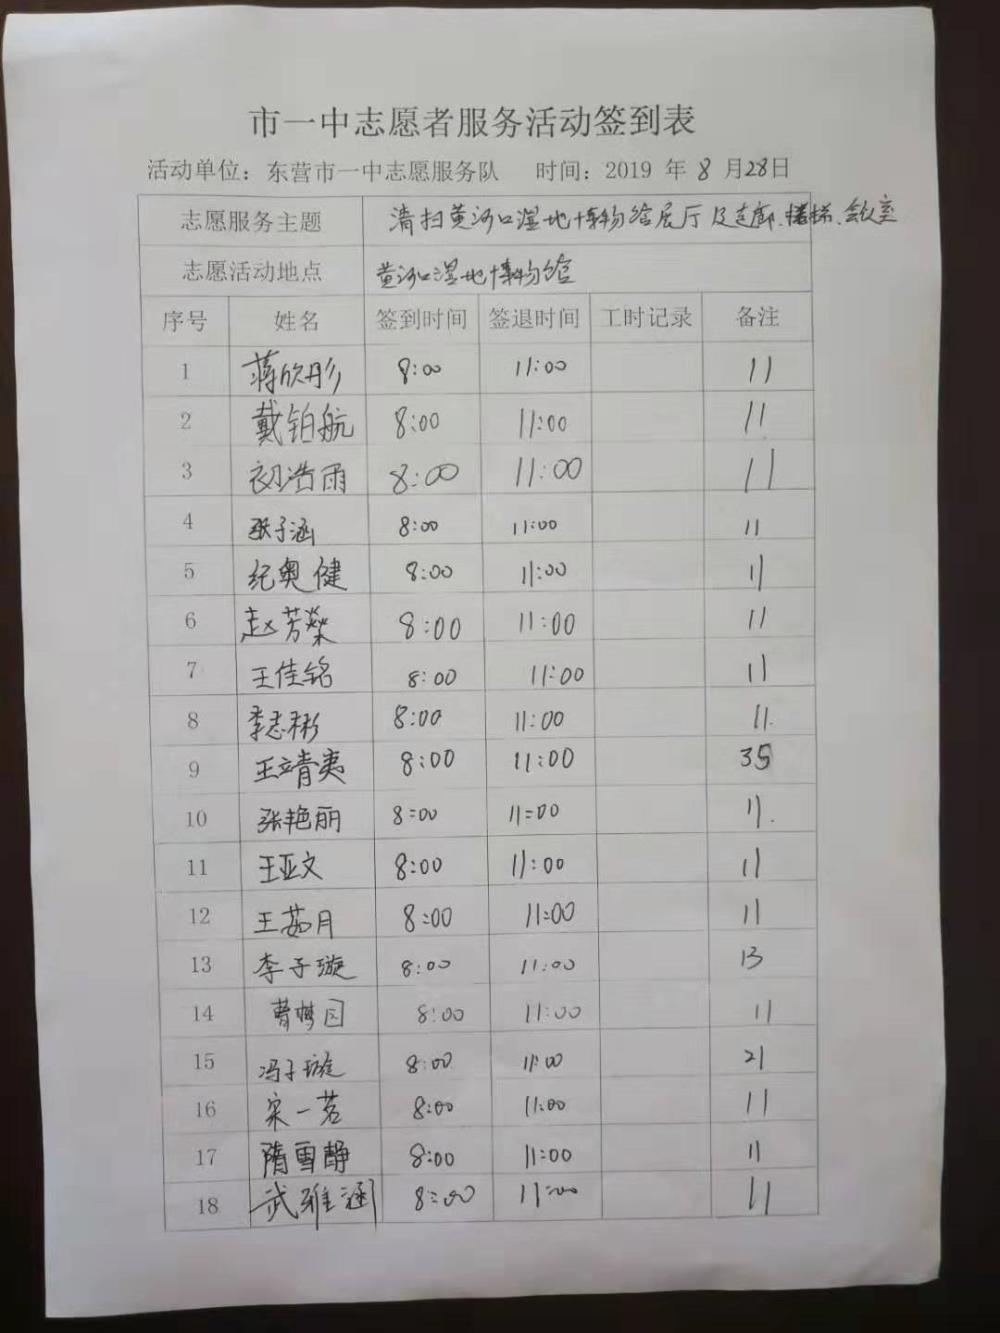 市一中志愿者服务活动签到表
活动单位：东营市一中志愿服务队 时间：2019 年 8 月28日
志愿服务主题 清扫黄河口湿地博物馆展厅及走廊、楼梯、会议室
志愿活动地点 黄河口湿地博物馆
序号 姓名 签到时间 签退时间 工时记录 备注
1 蒋欣彤 8:00 11:00 11
2 戴铂航 8:00 11:00 11
3 初浩雨 8:00 11:00 11
4 张子涵 8:00 11:00 11
5 纪奥健 8:00 11:00 11
6 赵芳燊 8:00 11:00 11
7 王佳铭 8:00 11:00 11
8 李志彬 8:00 11:00 11.
9 王靖夷 8:00 11:00 35
10 张艳丽 8:00 11:00 11.
11 王亚文 8:00 11:00 11
12 王茹月 8:00 11:00 11
13 李子璇 8:00 11:00 13
14 曹梦园 8:00 11:00 11
15 冯子璇 8:00 11:00 21
16 宋一茗 8:00 11:00 11
17 隋雪静 8:00 11:00 11
18 武雅涵 8:00 11:00 11